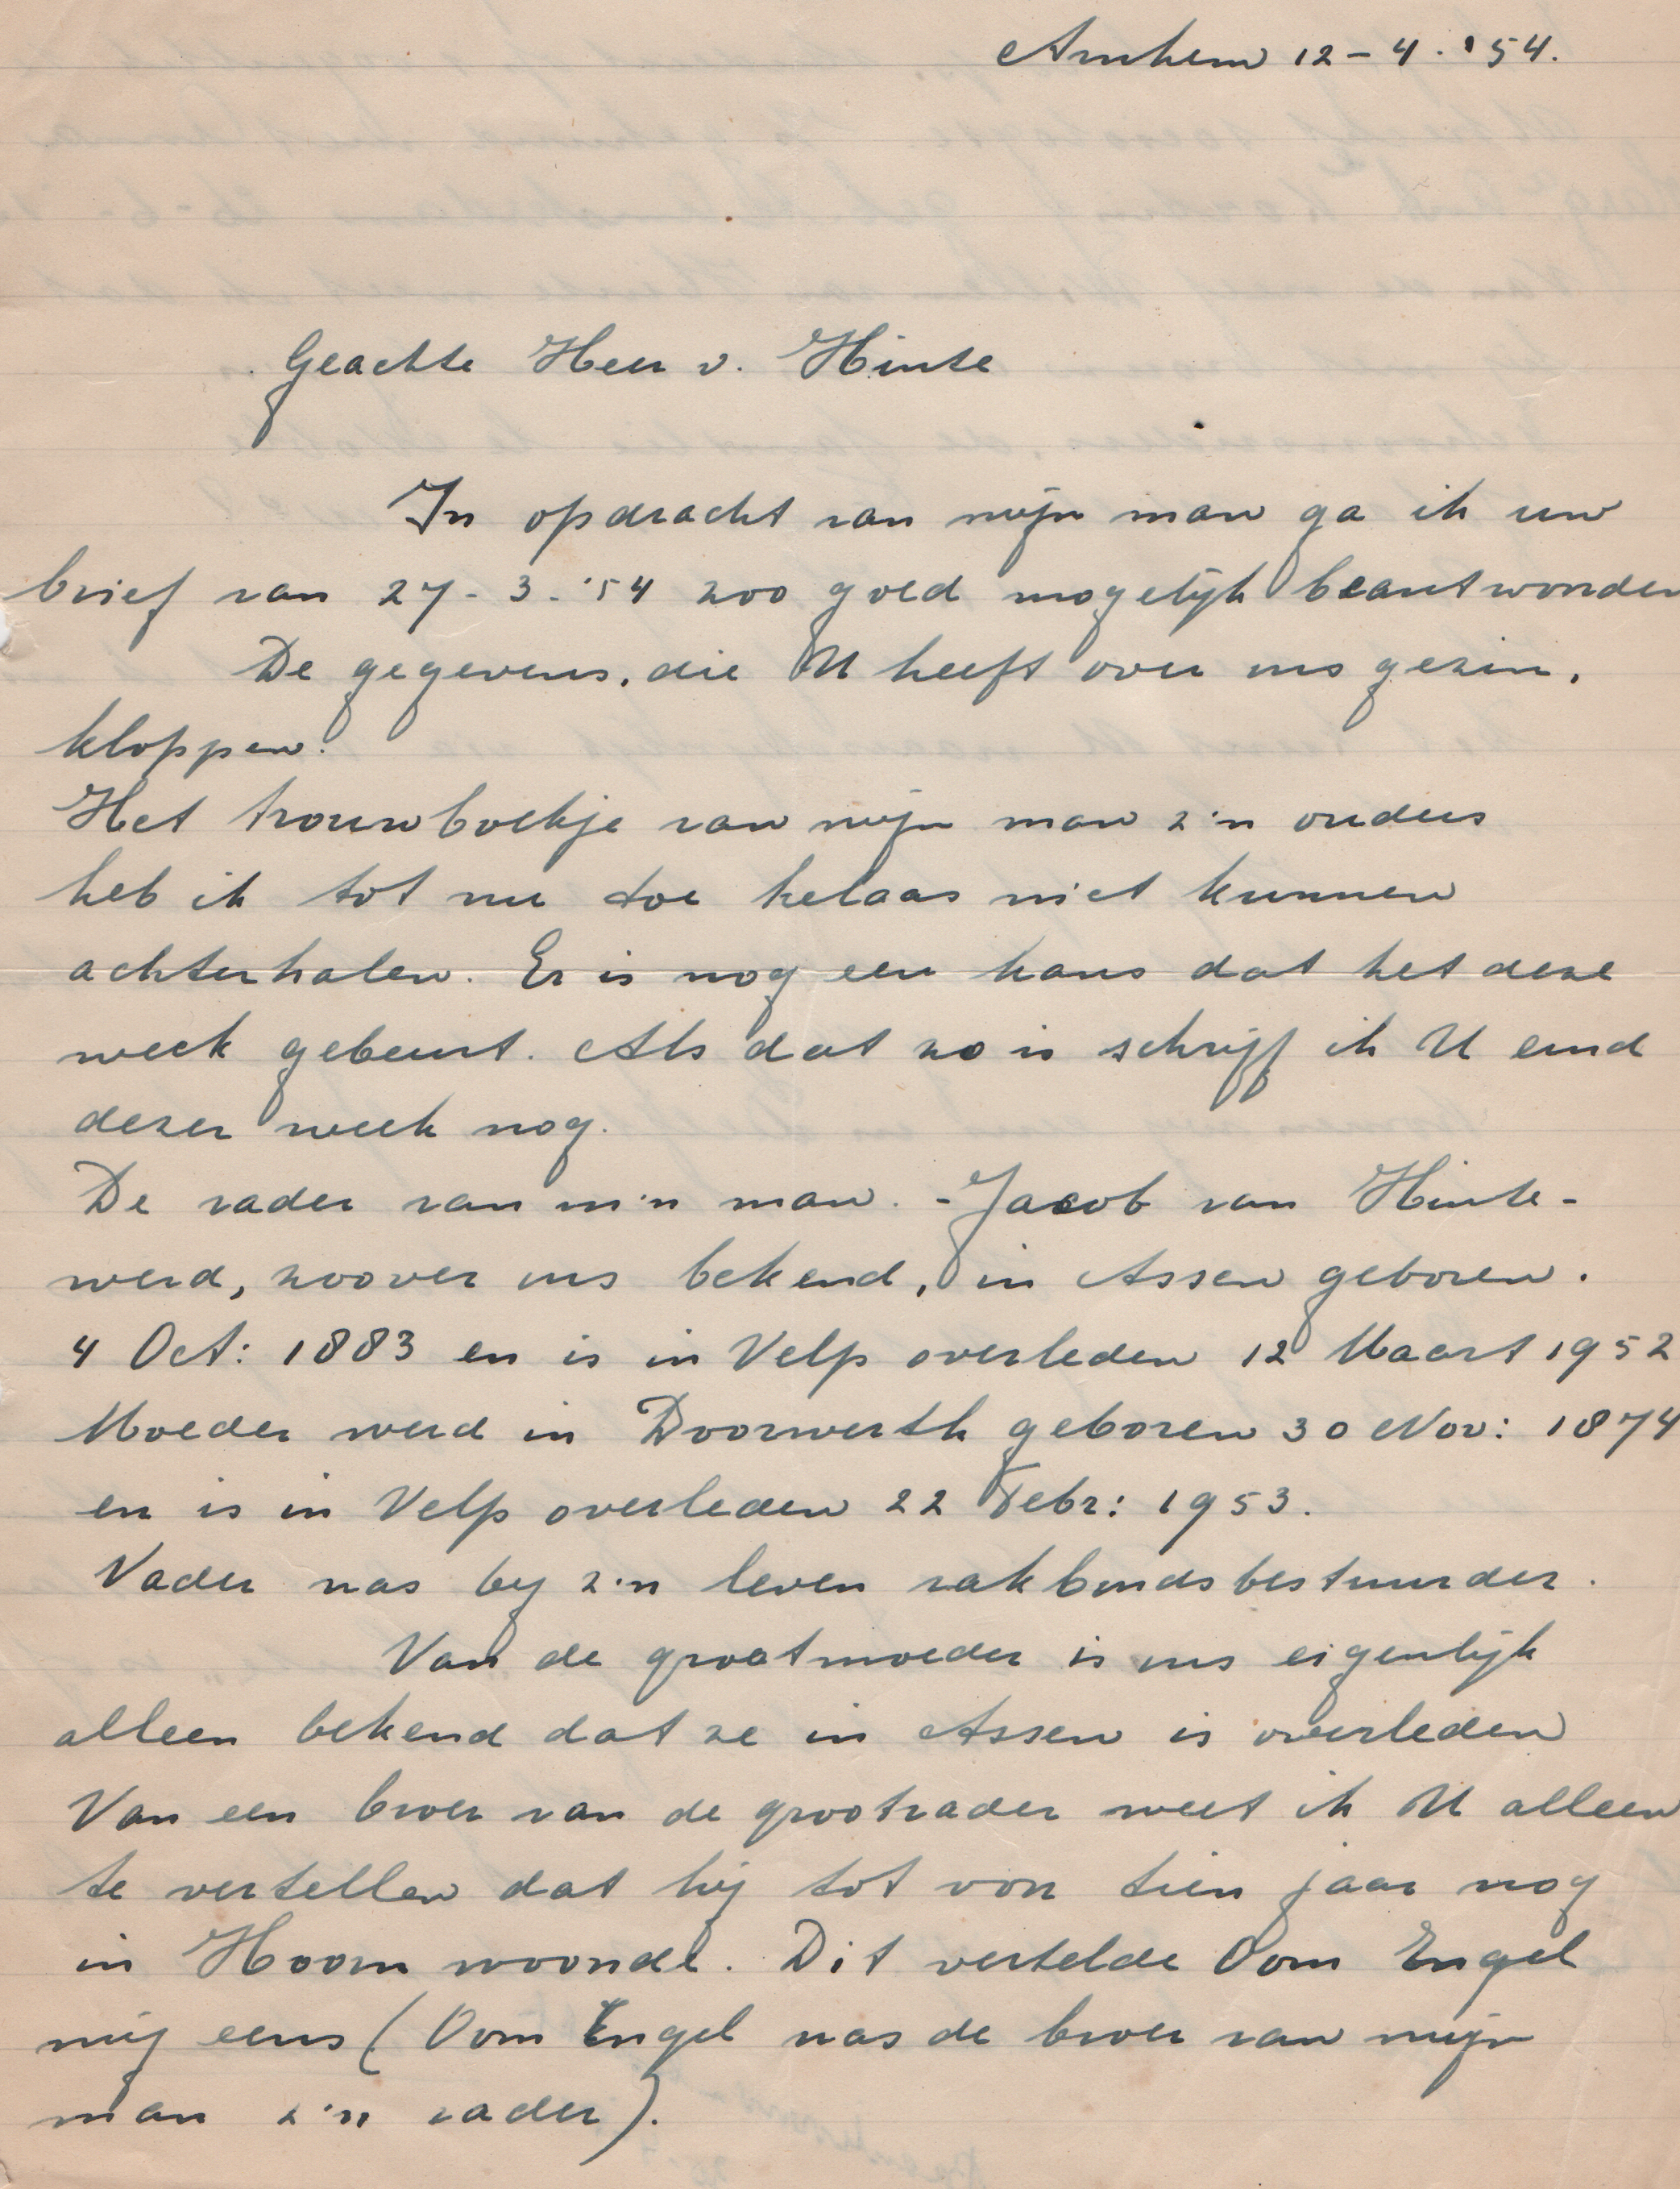 Arnhem 12-4-'54.
Geachte Heer v. Hinte
In opdracht van mijn man ga ik uw
brief van 27-3-'54 zoo goed mogelijk beantwoorden
De gegevens, die U heeft over ons gezin,
kloppen.
Het trouwboekje van mijn man z'n ouders
heb ik tot nu toe helaas niet kunnen
achterhalen. Er is nog een kans dat het deze
week gebeurt. Als dat zo is schrijf ik U eind
dezer week nog.
De vader van m'n man. - Jacob van Hinte -
werd, zoover ons bekend, in Assen geboren.
4 Oct: 1883 en is in Velp overleden 12 Maart 1952
Moeder werd in Doorwerth geboren 30 Nov: 1874
en is in Velp overleden 22 Febr: 1953.
Vader was bij z'n leven vakbondsbestuurder.
Van de grootmoeder is ons eigenlijk
alleen bekend dat ze in Assen is overleden
Van een broer van de grootvader weet ik U alleen
te vertellen dat hij tot voor tien jaar nog
in Hoorn woonde. Dit vertelde Oom Engel
mij eens (Oom Engel was de broer van mijn
man z'n vader).